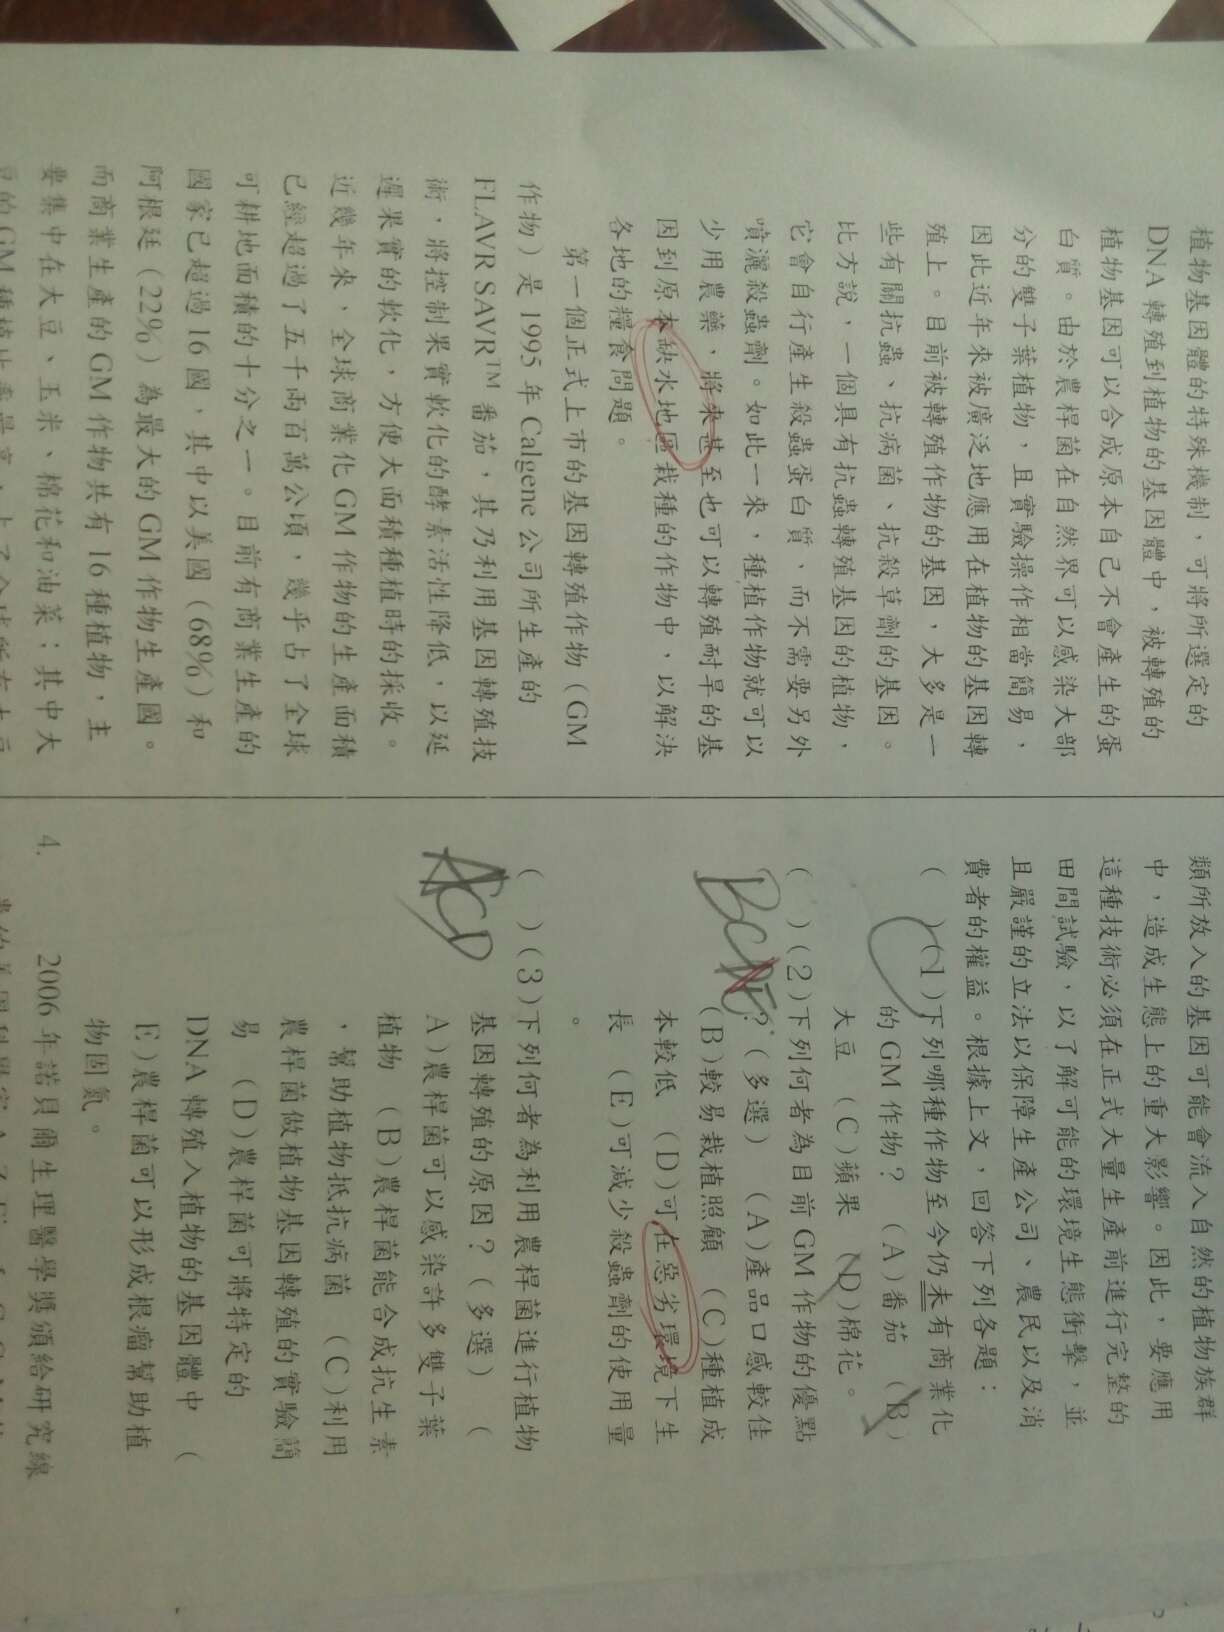 植物基因體的特殊機制，可將所選定的
DNA 轉殖到植物的基因體中，被轉殖的
植物基因可以合成原本自己不會產生的蛋
白質。由於農桿菌在自然界可以感染大部
分的雙子葉植物，且實驗操作相當簡易，
因此近年來被廣泛地應用在植物的基因轉
殖上。目前被轉殖作物的基因，大多是一
些有關抗蟲、抗病菌、抗殺草劑的基因。
比方說，一個具有抗蟲轉殖基因的植物，
它會自行產生殺蟲蛋白質，而不需要另外
噴灑殺蟲劑。如此一來，種植作物就可以
少用農藥，將來甚至也可以轉殖耐旱的基
因到原本缺水地區栽種的作物中，以解決
各地的糧食問題。
第一個正式上市的基因轉殖作物（GM
作物）是 1995 年 Calgene 公司所生產的
FLAVR SAVR™ 番茄，其乃利用基因轉殖技
術，將控制果實軟化的酵素活性降低，以延
遲果實的軟化，方便大面積種植時的採收。
近幾年來，全球商業化 GM 作物的生產面積
已經超過了五千兩百萬公頃，幾乎占了全球
可耕地面積的十分之一。目前有商業生產的
國家已超過 16 國，其中以美國（68%）和
阿根廷（22%）為最大的 GM 作物生產國。
而商業生產的 GM 作物共有 16 種植物，主
要集中在大豆、玉米、棉花和油菜；其中大
類所放入的基因可能會流入自然的植物族群
中，造成生態上的重大影響。因此，要應用
這種技術必須在正式大量生產前進行完整的
田間試驗，以了解可能的環境生態衝擊，並
且嚴謹的立法以保障生產公司、農民以及消
費者的權益。根據上文，回答下列各題：
( C )(1)下列哪種作物至今仍未有商業化
的 GM 作物？ (A)番茄 (B)
大豆 (C)蘋果 (D)棉花。
( )(2)下列何者為目前 GM 作物的優點
？（多選） (A)產品口感較佳
(B)較易栽植照顧 (C)種植成
本較低 (D)可在惡劣環境下生
長 (E)可減少殺蟲劑的使用量
。
( )(3)下列何者為利用農桿菌進行植物
ACD
基因轉殖的原因？（多選） (
A)農桿菌可以感染許多雙子葉
植物 (B)農桿菌能合成抗生素
，幫助植物抵抗病菌 (C)利用
農桿菌做植物基因轉殖的實驗簡
易 (D)農桿菌可將特定的
DNA 轉殖入植物的基因體中 (
E)農桿菌可以形成根瘤幫助植
物固氮。
4. 2006 年諾貝爾生理醫學獎頒給研究線